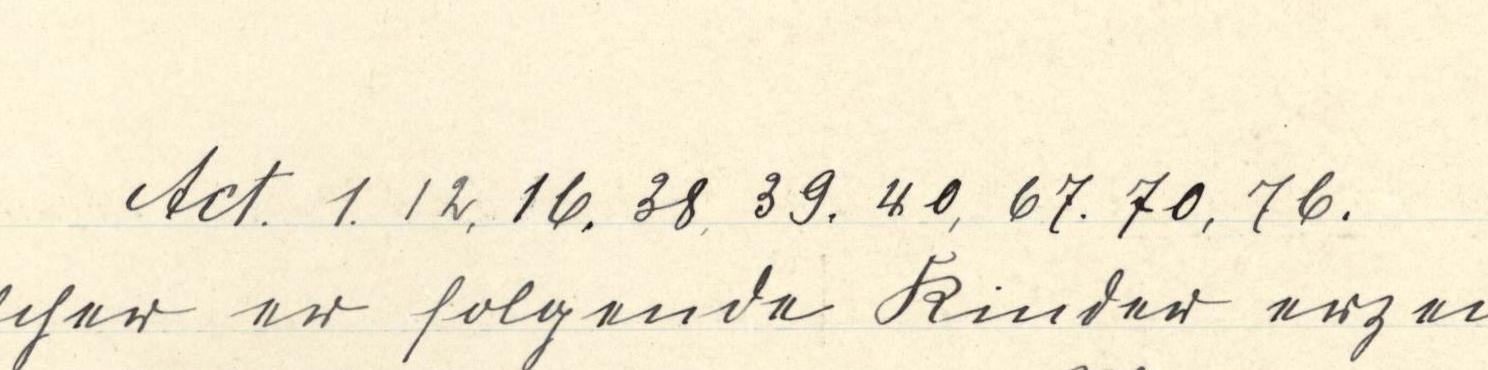 Act. 1. 12, 16. 38, 39. 40, 67. 70, 76.
er folgende Kinder